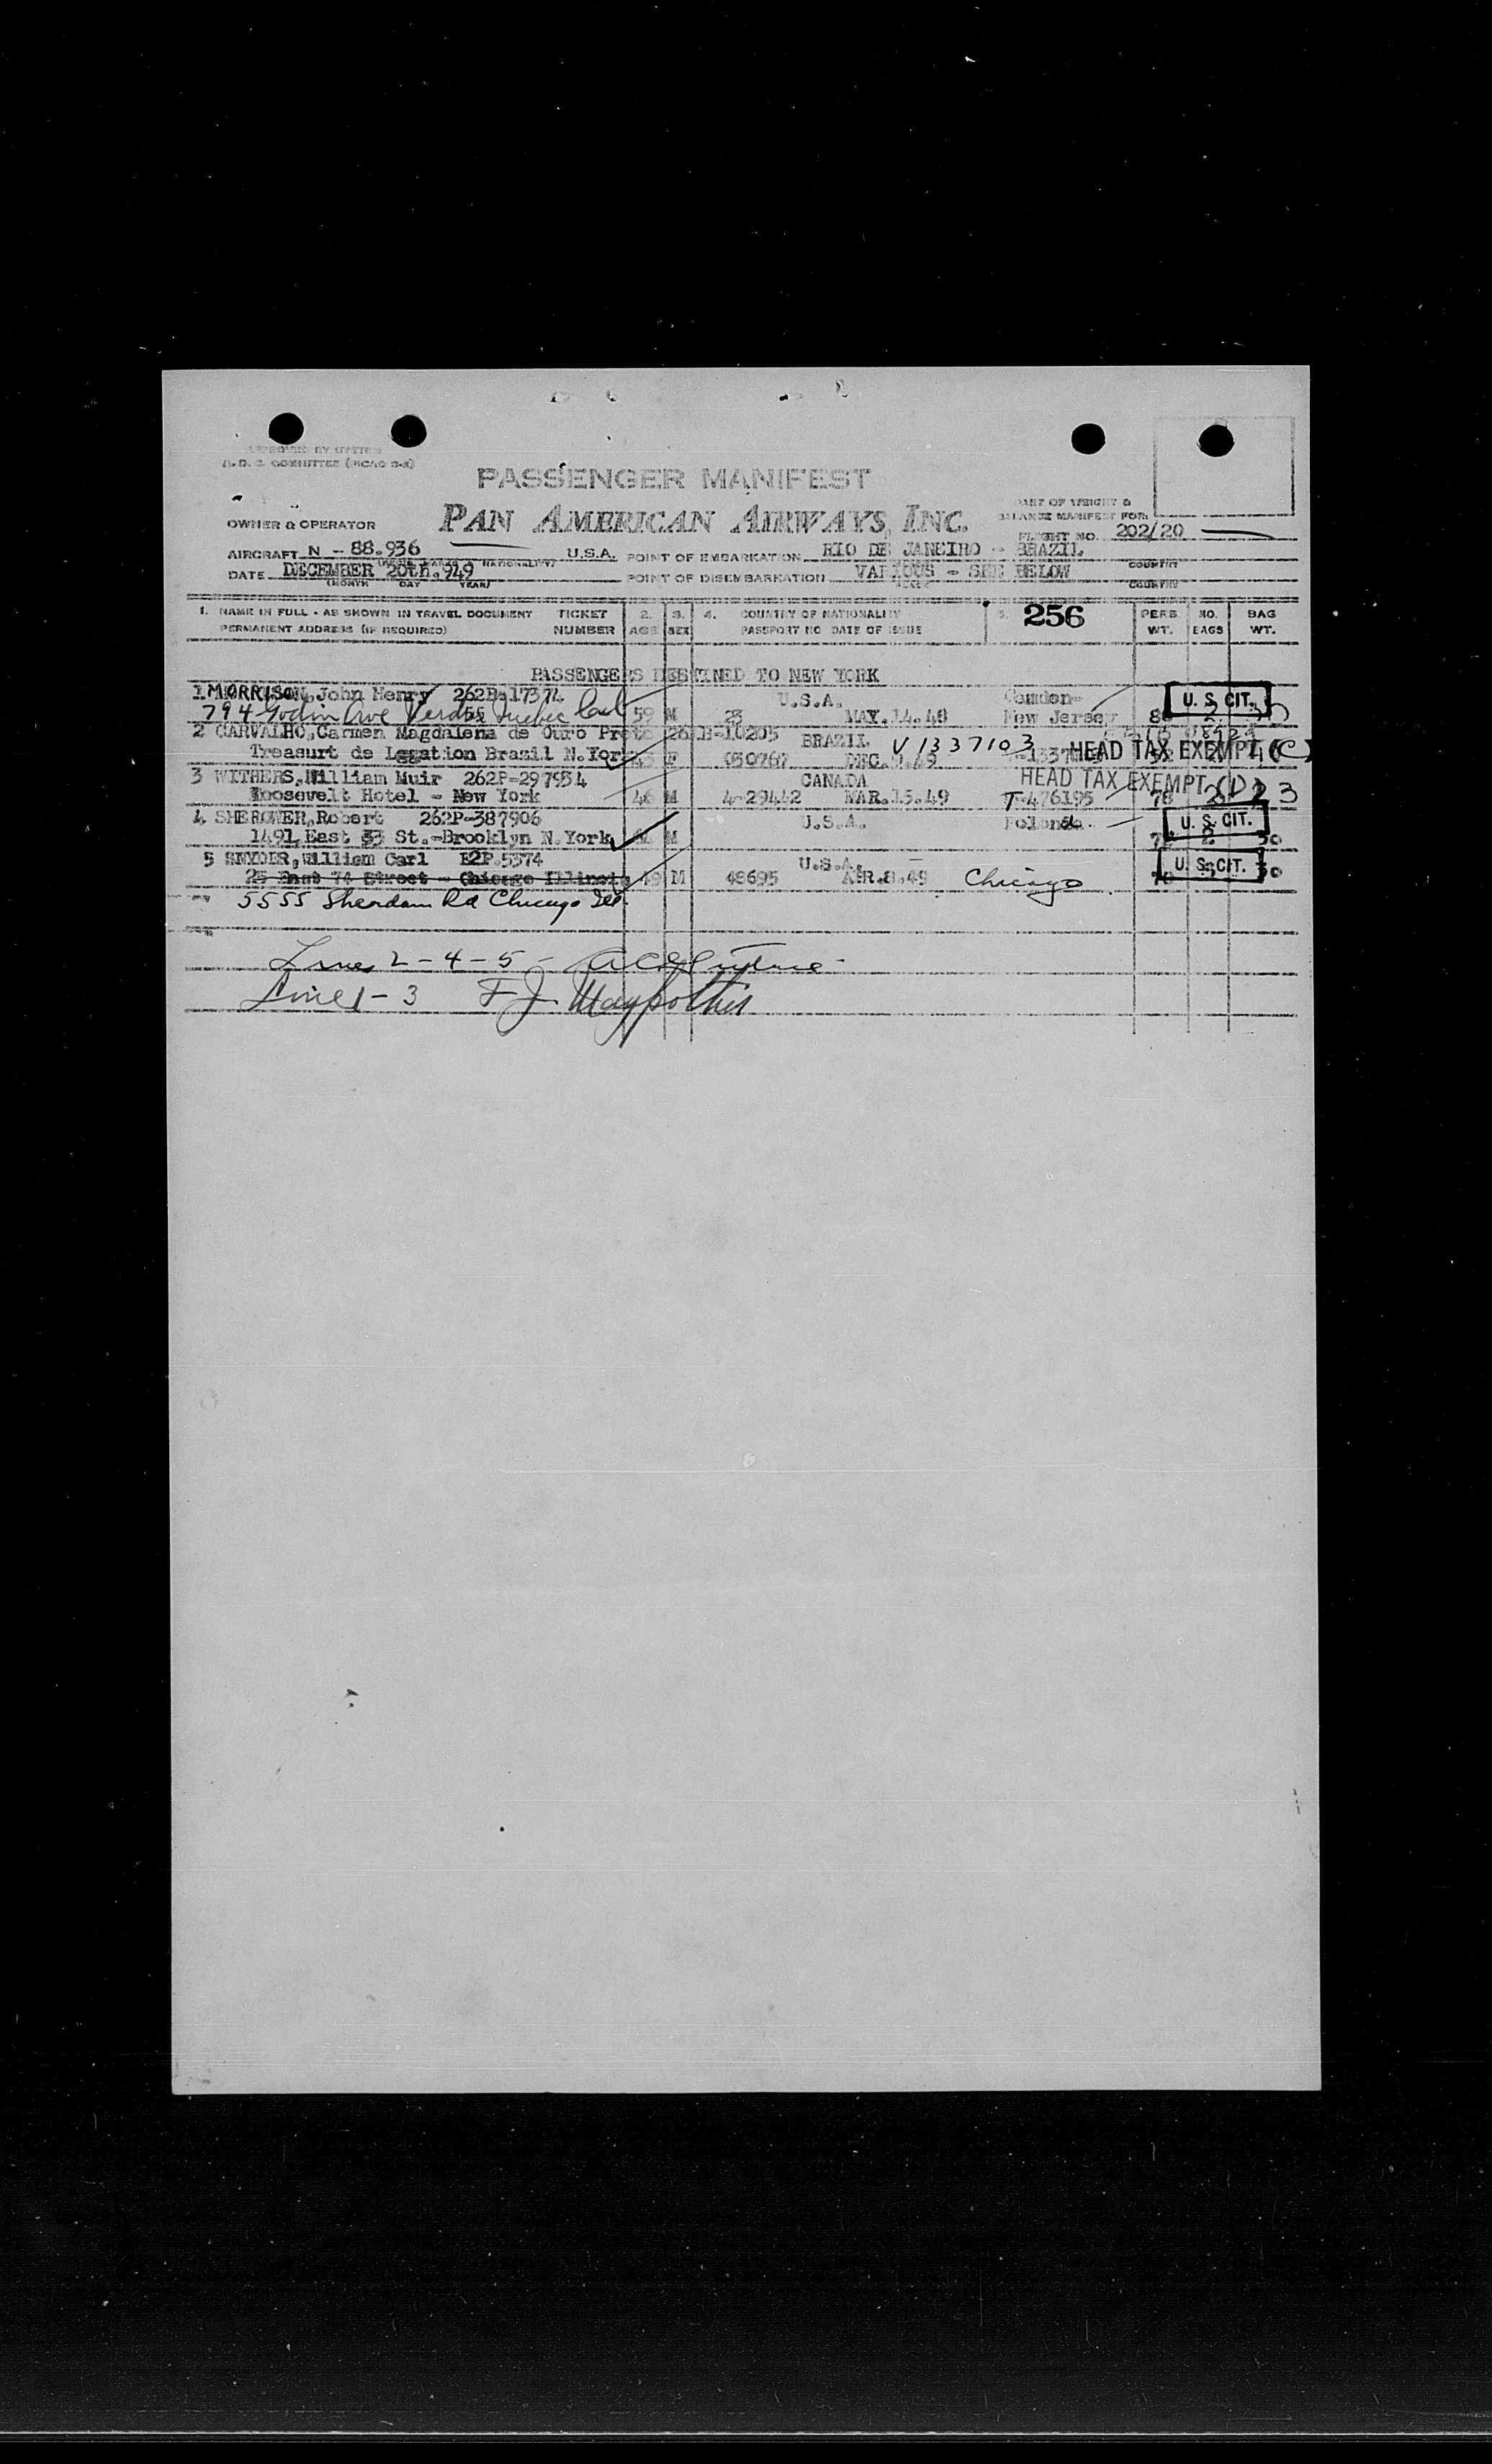 PASSENGER MANIFEST
PAN AMERICAN AIRWAYS, INC.
OWNER & OPERATOR
FLIGHT NO. 202/20
AIRCRAFT N - 88.936 U.S.A. POINT OF EMBARKATION RIO DE JANEIRO - BRAZIL
DATE DECEMBER 20th.949 POINT OF DISEMBARKATION VARIOUS - SEE BELOW
(MONTH DAY YEAR) COUNTRY
1. NAME IN FULL - AS SHOWN IN TRAVEL DOCUMENT TICKET 2. 3. 4. COUNTRY OF NATIONALITY 5. 256 PERS. NO. BAG
PERMANENT ADDRESS (IF REQUIRED) NUMBER AGE SEX PASSPORT NO DATE OF ISSUE WT. BAGS WT.
PASSENGERS DESTINED TO NEW YORK
1 MORRISON, John Henry 262B-17374 U.S.A. Camden- U. S. CIT.
794 Godin Ave Verdun Quebec 59 M 23 MAY.14.48 New Jersey
2 CARVALHO, Carmen Magdalena de Ouro Preto BRAZIL V 1337103
Treasurt de Legation Brazil N.York F 030767 DEC. .49 HEAD TAX EXEMPT (C)
3 WITHERS, William Muir 262P-297934 CANADA HEAD TAX EXEMPT (D)
Roosevelt Hotel - New York 46 M 4-29442 MAR.15.49 T-476195 78
4 SHEROWER, Robert 262P-387906 U.S.A. U. S. CIT.
1491 East 33 St.-Brooklyn N.York M 2 30
5 SNYDER, William Carl E2P.5374 U.S.A. U. S. CIT.
25 East 74 Street - Chicago Illinois 49 M 48695 APR.8.49 Chicago
5555 Sherdam Rd Chicago Ill.
Lines 2-4-5 -
Line 1-3 F J